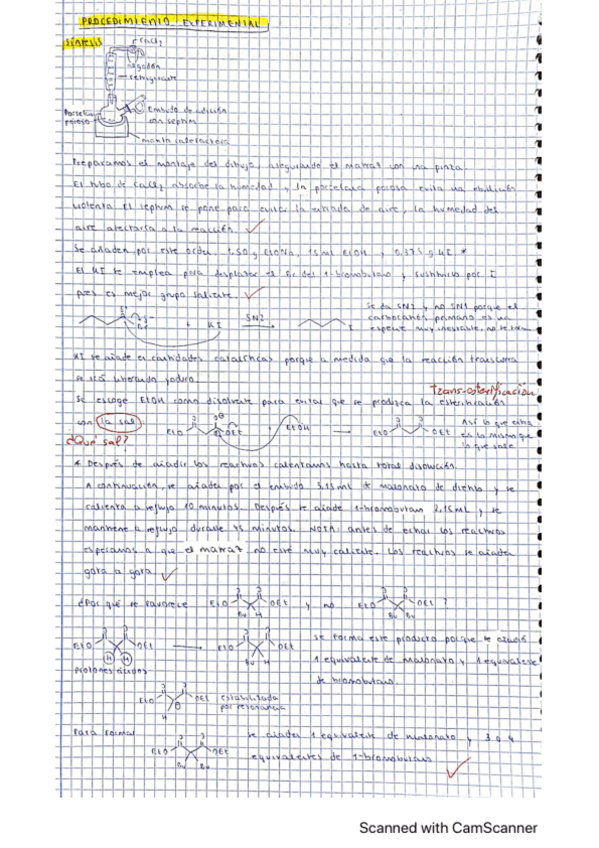 PROCEDIMIENTO EXPERIMENTAL
SÍNTESIS
CaCl2
algodón
refrigerante
Porcelana porosa
Embudo de adición
con septum
manta calefactora
Preparamos el montaje del dibujo, asegurando el matraz con una pinza.
El tubo de CaCl2 absorbe la humedad y la porcelana porosa evita una ebullición
violenta. El septum se pone para evitar la entrada de aire, la humedad del
aire afectaría a la reacción.
Se añaden por este orden: 2.50 g EtONa, 15 mL EtOH y 0.375 g KI. *
El KI se emplea para desplazar el Br del 1-bromobutano y sustituirlo por I
pues es mejor grupo saliente.
+ KI
SN2
I
Se da SN2 y no SN1 porque el
carbocatión primario es un
especie muy inestable, no se
KI se añade en cantidades catalíticas porque a medida que la reacción transcurre
se irá liberando yoduro.
trans-esterificación
Se escoge EtOH como disolvente para evitar que se produzca la esterificación
con la sal
¿Qué sal?
EtO OEt
EtOH
EtO OEt
Así lo que entra
es lo mismo que
lo que sale
* Después de añadir los reactivos calentamos hasta total disolución.
A continuación, se añade por el embudo 3.15 mL de malonato de dietilo y se
calienta a reflujo 10 minutos. Después se añade 1-bromobutano 2.15 mL y se
mantiene a reflujo durante 45 minutos. NOTA: antes de echar los reactivos
esperamos a que el matraz no esté muy caliente. Los reactivos se añaden
gota a gota
¿Por qué se favorece EtO OEt Bu H y no EtO OEt Bu Bu ?
EtO OEt H H
EtO OEt Bu H
Protones ácidos
Se forma este producto porque se añadió
1 equivalente de malonato y 1 equivalente
de bromobutano.
EtO OEt H
estabilizada
por resonancia
Para formar
EtO OEt Bu Bu
se añade 1 equivalente de malonato y 3 o 4
equivalentes de 1-bromobutano
Scanned with CamScanner